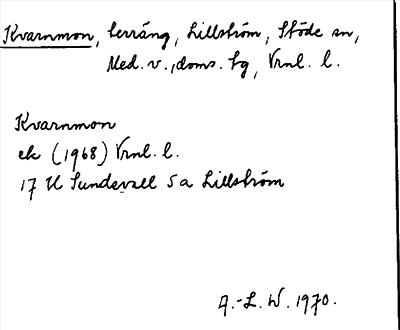 Kvarnmon, terräng, Lillström, Stöde sn,
Med. v., doms. tg, Vrnl. l.
Kvarnmon
ek (1968) Vrnl. l.
17 H Sundsvall 5a Lillström
A.-L. W. 1970.